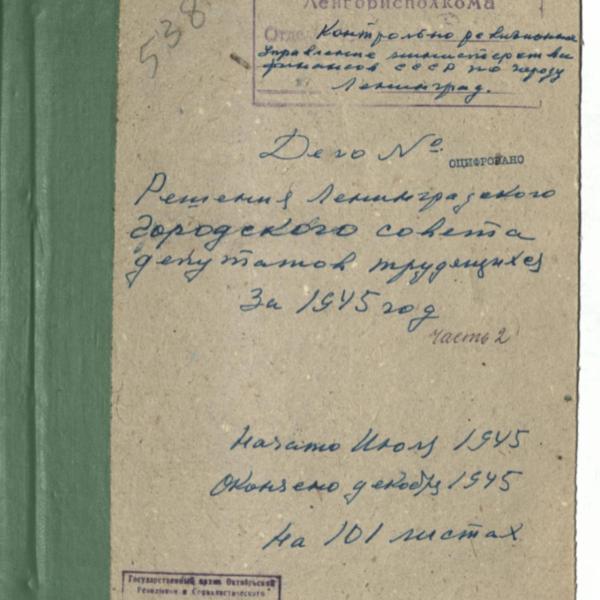 538
Ленгорисполкома
Отде
Контрольно ревизионное
Управление министерства
финансов СССР по городу
Ленинград.
Дело №
ОЦИФРОВАНО
Решения Ленинградского
городского совета
депутатов трудящихся
За 1945 год
часть 2
Начато Июль 1945
Окончено декабрь 1945
На 101 листах
Государственный архив Октябрьской
Революции и Социалистического